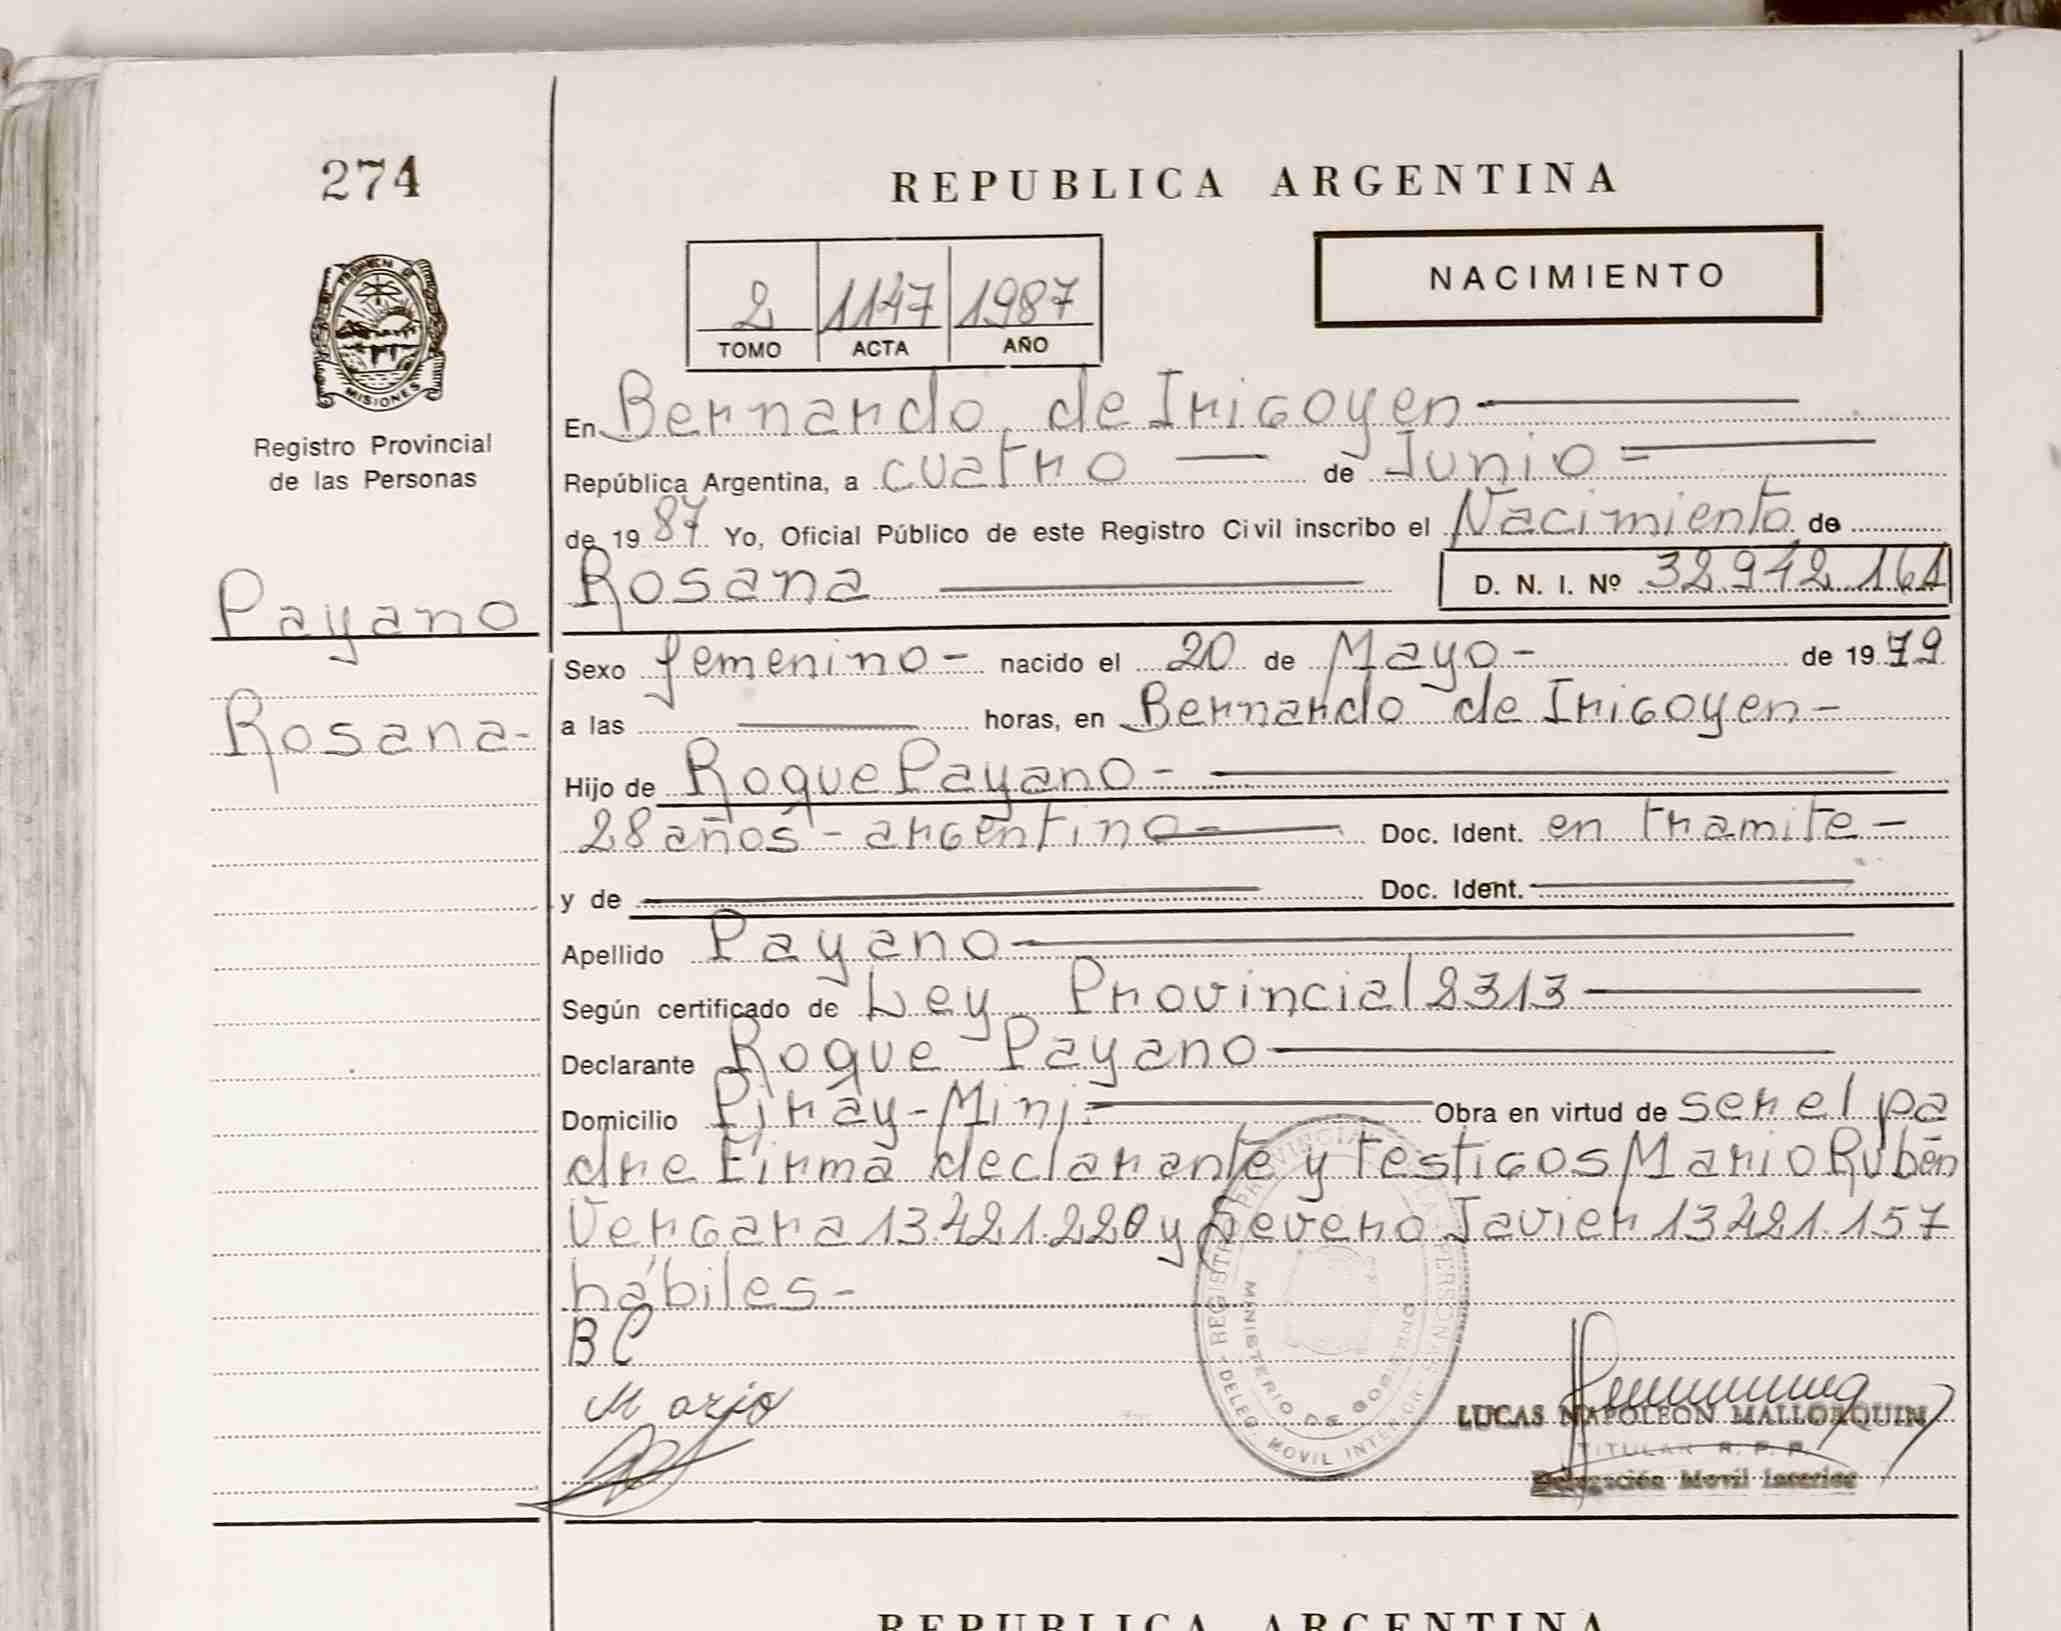 274
REPUBLICA ARGENTINA
NACIMIENTO
2 1147 1987
TOMO ACTA AÑO
PROVINCIA DE
MISIONES
Registro Provincial
de las Personas
En Bernardo de Irigoyen
República Argentina, a cuatro de Junio
de 1987 Yo, Oficial Público de este Registro Civil inscribo el Nacimiento de
Rosana D. N. I. Nº 32.942.161
Payano
Rosana-
Sexo femenino - nacido el 20 de Mayo - de 1979
a las horas, en Bernardo de Irigoyen -
Hijo de Roque Payano -
28 años - argentino - Doc. Ident. en tramite -
y de Doc. Ident.
Apellido Payano
Según certificado de Ley Provincial 2313
Declarante Roque Payano
Domicilio Piray-Mini Obra en virtud de ser el pa
dre Firma declarante y testigos Mario Rubén
Vergara 13.421.220 y Severo Javier 13421.157
hábiles-
B C
Mario
REGISTRO PROVINCIAL PERSONAS
MINISTERIO DE GOBIERNO
DELEG. MOVIL INTERIOR
LUCAS NAPOLEON MALLORQUIN
TITULAR R. P. P.
Delegación Movil Interior
REPUBLICA ARGENTINA